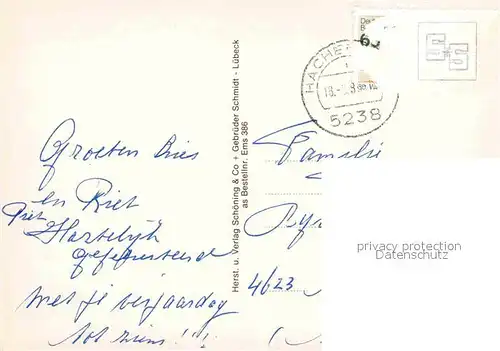 Groeten Kees
en Riet
Piet
Hartelijk
gefeliciteerd
met je verjaardag
tot ziens!!!
Herst. u. Verlag Schöning & Co + Gebrüder Schmidt - Lübeck
as Bestellnr. Ems 386
HACHE
18.-
5238
60
Familie
4623
privacy protection
Datenschutz